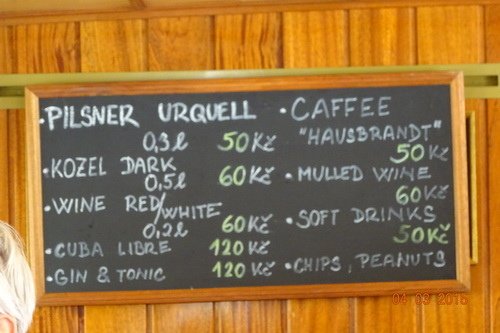 •PILSNER URQUELL
0,3l 50Kč
•KOZEL DARK
0,5l 60Kč
•WINE RED/WHITE
0,2l 60Kč
•CUBA LIBRE 120Kč
•GIN & TONIC 120Kč
•CAFFEE
"HAUSBRANDT"
50Kč
•MULLED WINE
60Kč
•SOFT DRINKS
50Kč
•CHIPS, PEANUTS
04 03 2015